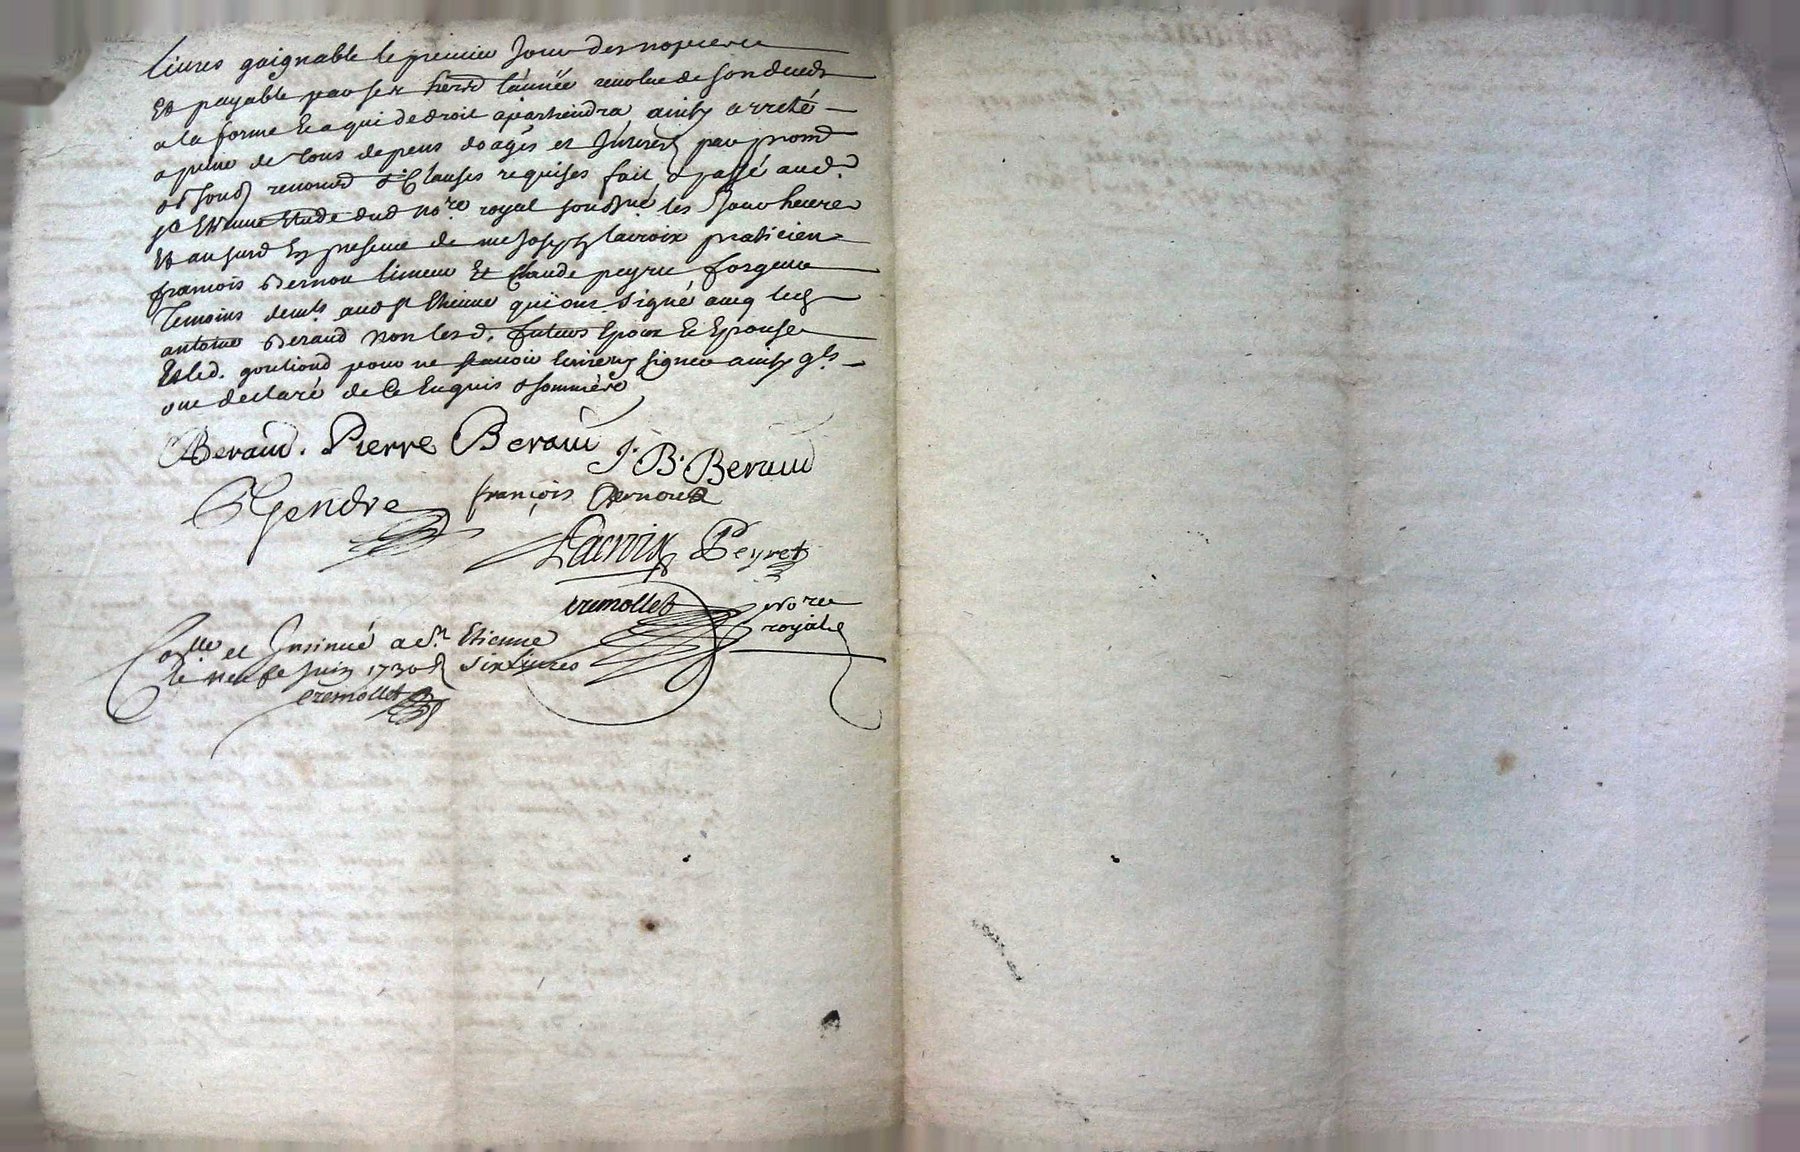 livres gaignable le premier Jour des nopces
Et payable par ses herrs l'année revolue de son deceds
a la forme & a qui de droit apartiendra ainsy arreté
a peine de tous depens doages et Interets par promes
renoncd & Clauses requises fait & passé aud.
St Etienne Etude dud nore royal soussigné les Jour heure
Et an susd En presence de me Joseph Lacroix praticien
françois Dernou limeur Et Claude peyre forgeur
Temoins demts aud st Etienne qui ont signé avecq led
antoine Beraud non lesd. futurs Epoux & Epouse
Et led. gouliond pour ne scavoir Ecrire ny signer ainsy qls
ont declaré de Ce Enquis & sommés
Beraud. Pierre Beraud J. B. Beraud
Gendre françois Dernou
Lacroix Peyret
cremollet Nore
royal
Collé et Insinué a St Etienne
le neufe Juin 1730 R six Livres
cremollet